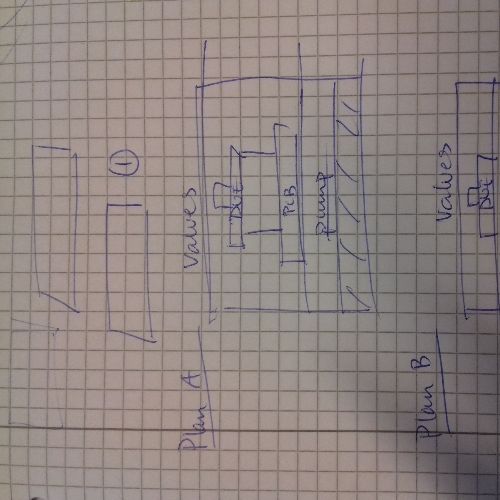 ①
Plan A
Valves
DUE
PCB
pump
Plan B
Valves
DUE